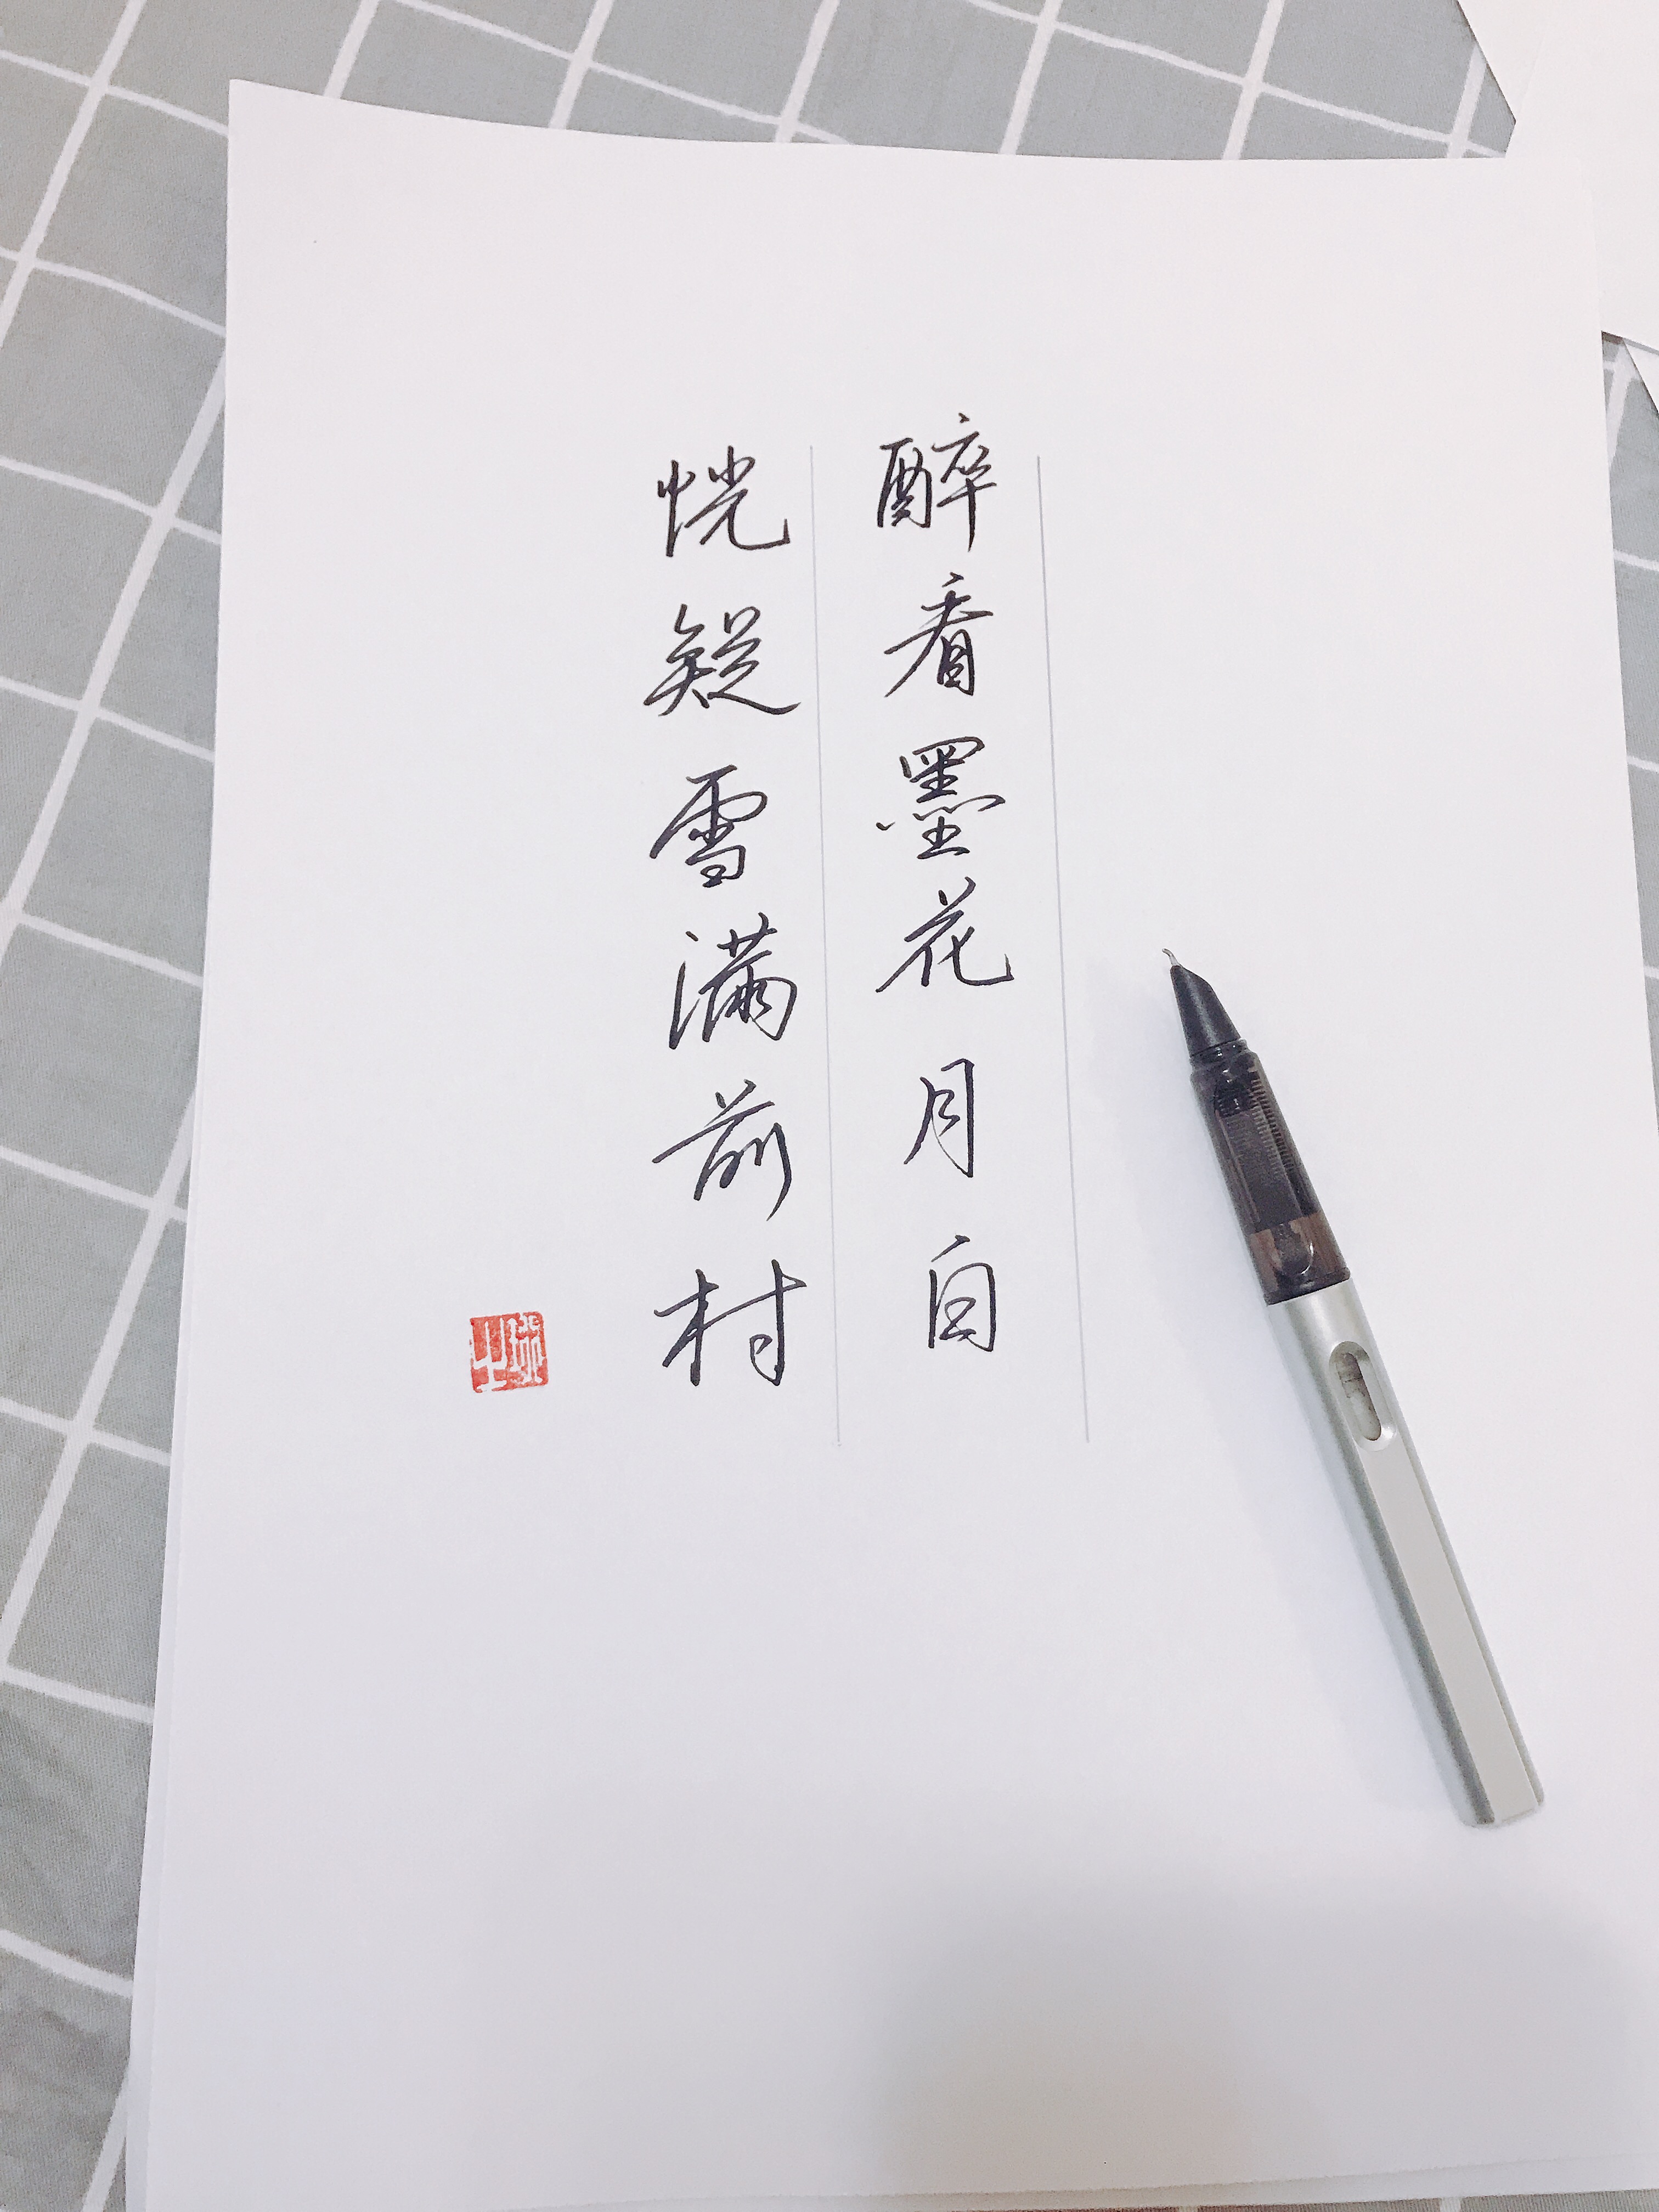 醉看墨花月白
恍疑雪满前村